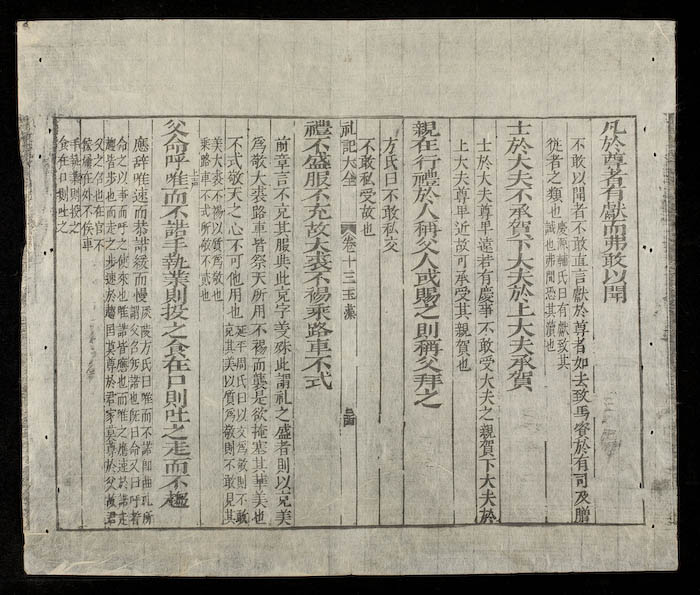 凡於尊者有獻而弗敢以聞
不敢以聞者不敢直言獻於尊者如云致馬資於有司及贈
從者之類也
慶源輔氏曰有獻致其
誠也弗聞恐其瀆也
士於大夫不承賀下大夫於上大夫承賀
士於大夫尊卑遠若有慶事不敢受大夫之親賀下大夫於
上大夫尊卑近故可承受其親賀也
親在行禮於人稱父人或賜之則稱父拜之
方氏曰不敢私交
不敢私受故也
礼記大全 卷十三 玉藻
禮不盛服不充故大裘不裼乘路車不式
前章言不充其服與此充字義殊此謂礼之盛者則以充美
為敬大裘路車皆祭天所用不裼而襲是欲掩塞其華美也
不式敬天之心不可他用也
延平周氏曰以文為敬則不敢
充其美以質為敬則不敢見其
美大裘不裼以質為敬也
乘路車不式所敬不貳也
父命呼唯而不諾手執業則投之食在口則吐之走而不趨
應辭唯速而恭諾緩而慢
嚴陵方氏曰唯而不諾即曲礼所
謂父召無諾也既曰命又曰呼者
命之以事而呼之使來也唯諾皆應也而唯之應速於諾走
趨皆步也而走之步速於趨